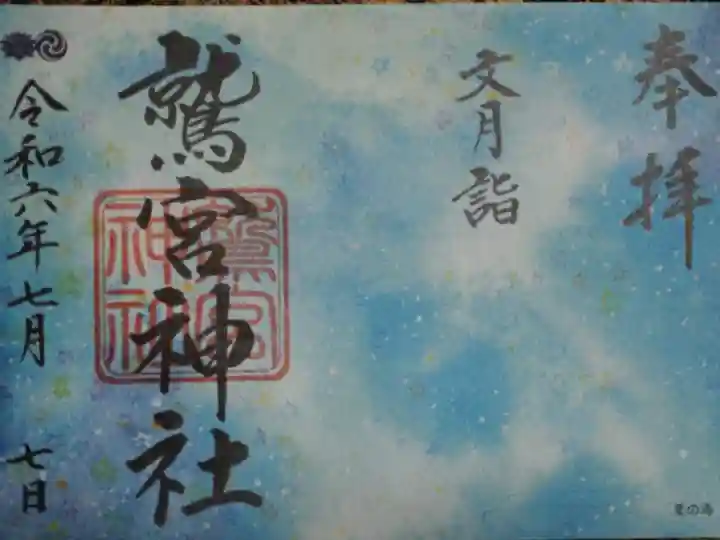 奉拝
文月詣
鷲宮神社
鷲宮神社
令和六年七月 七日
星の海